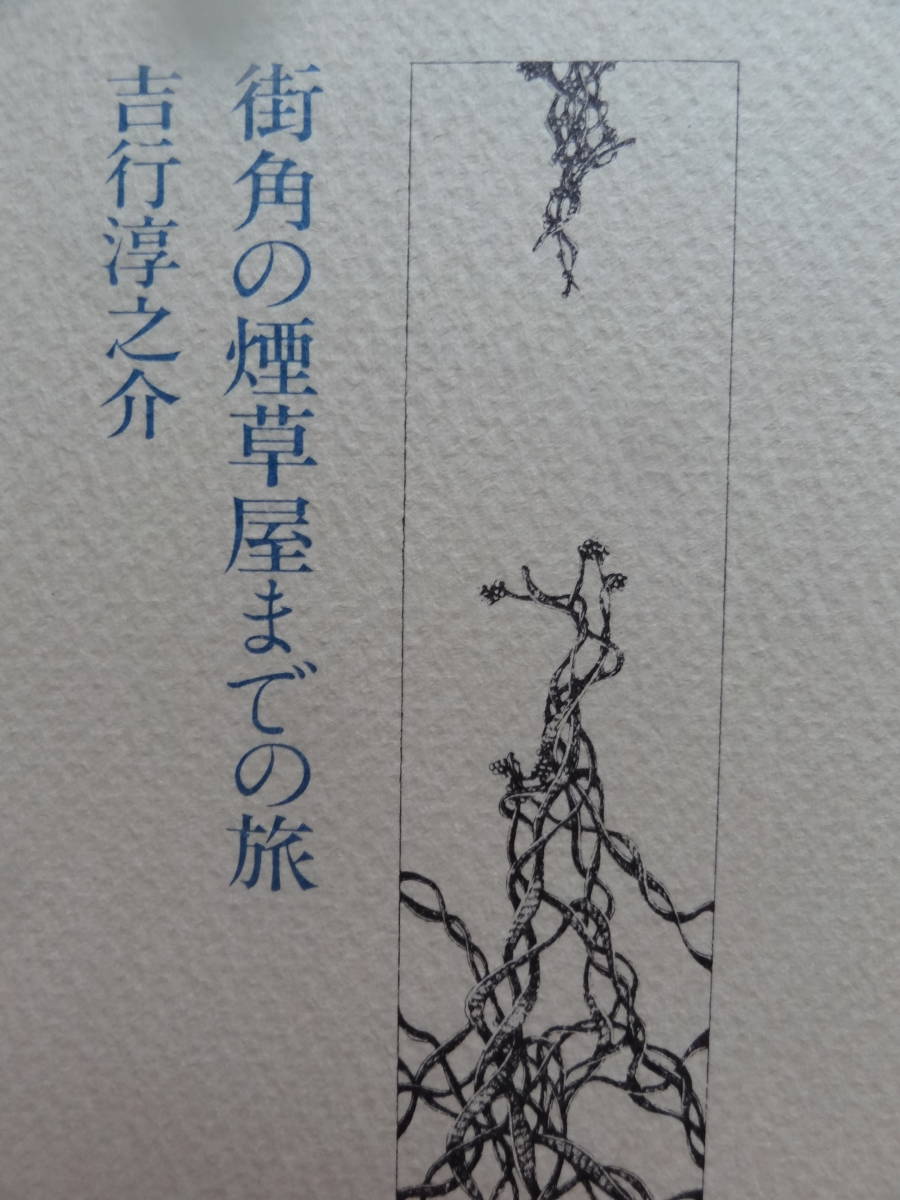 街角の煙草屋までの旅
吉行淳之介